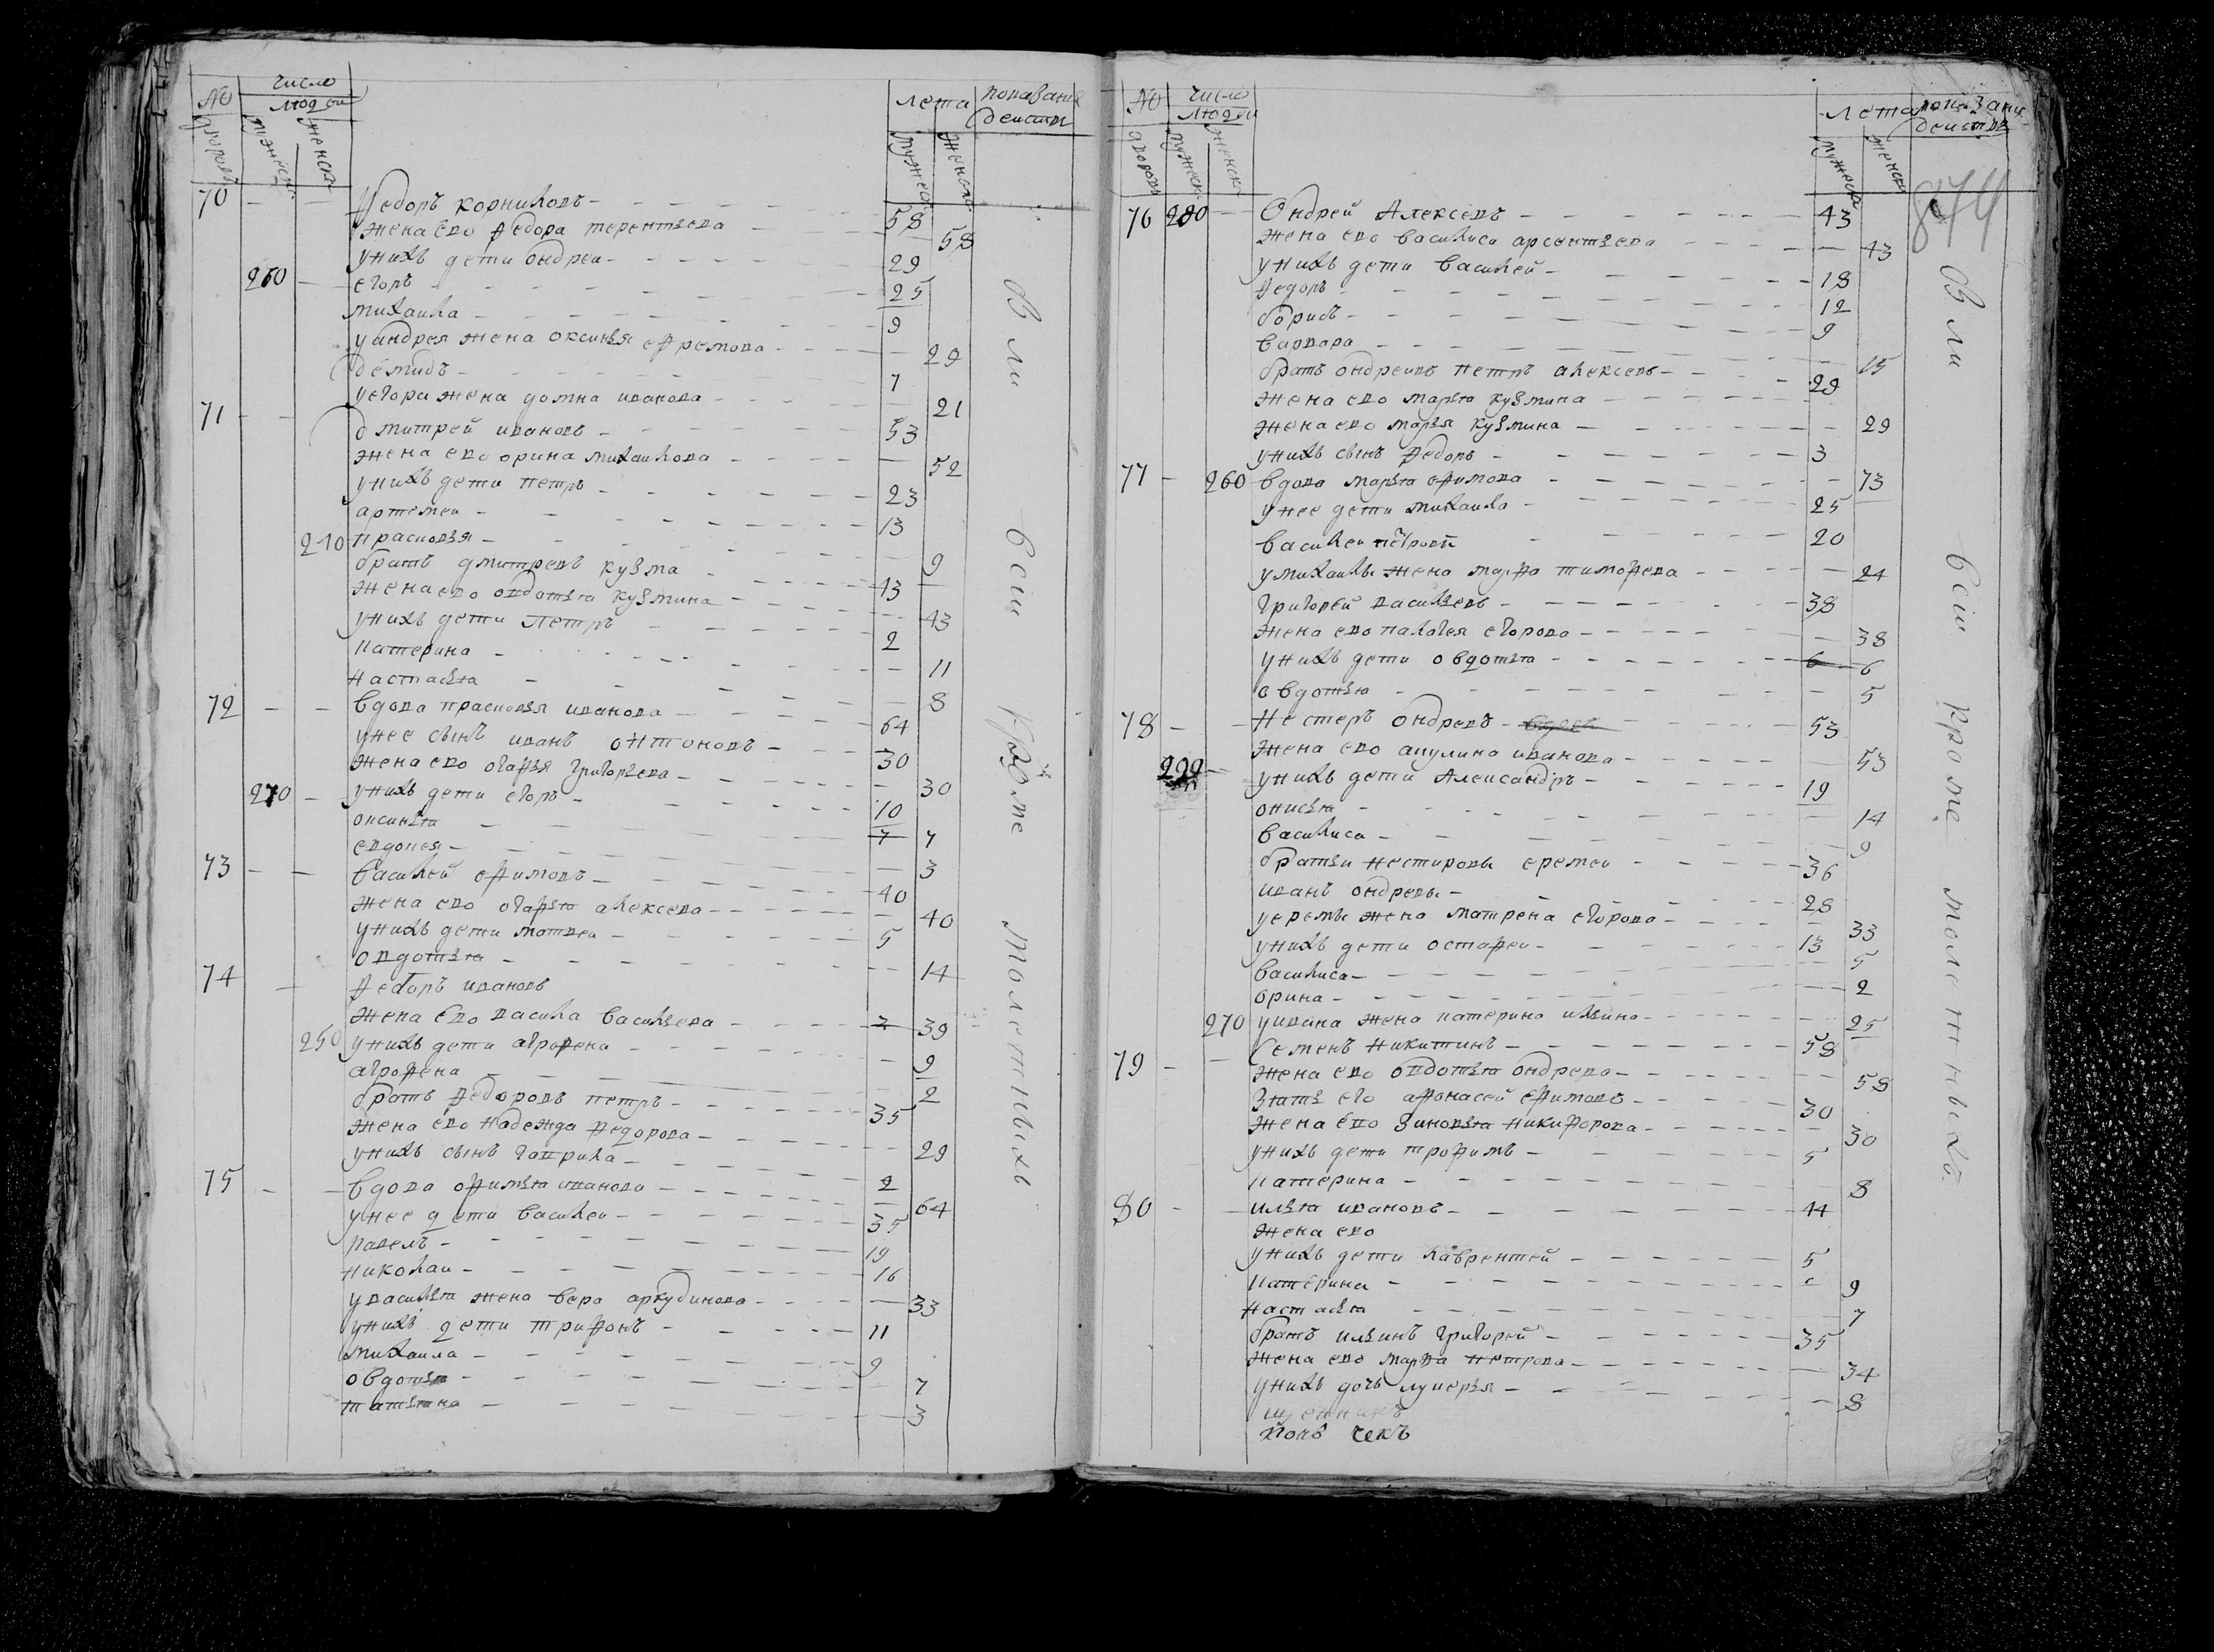 № число людей лета показание действа
дворовъ мужеска женска мужеска женска
70 — — Ѳедоръ корниловъ — 58
жена ево ѳедора терентьева — 58
унихъ дети ондреи — 29
260 — егоръ — 25
михаила — 9
уандрея жена оксинья ефремова — 29
демидъ — 7
уегора жена домна иванова — 21
71 — — дмитрей ивановъ — 53
жена ево орина михаилова — 52
унихъ дети петръ — 23
артемеи — 13
240 прасковья — 9
братъ дмитревъ кузма — 43
жена ево овдотья кузмина — 43
унихъ дети петръ — 2
катерина — 11
настасья — 8
72 — — вдова прасковья иванова — 64
унее сынъ иванъ онтоновъ — 30
жена ево огафья григорьева — 30
270 — унихъ дети егоръ — 10
оксинья — 7 7
евдокея — 3
73 — — василей ефимовъ — 40
жена ево огафья алексева — 40
унихъ дети матвеи — 5
овдотья — 14
74 — ѳедоръ ивановъ
жена ево василиса васильева — 39
250 унихъ дети агрофена — 9
агрофена — 2
братъ ѳедоровъ петръ — 35
жена ево надежда ѳедорова — 29
унихъ сынъ гаврила — 2
75 — — вдова офимья иванова — 64
унее дети василеи — 35
павелъ — 19
николаи — 16
увасилья жена вера аркудинова — 33
унихъ дети трифонъ — 11
михаила — 9
овдотья — 7
татьяна — 3
Были всіи кроме молетныхъ
№ число людей лета показание действа
дворовъ мужеска женска мужеска женска
874
76 280 — Ондрей Алексевъ — 43
жена ево василиса арсентьева — 43
унихъ дети василей — 18
ѳедоръ — 12
борисъ — 9
варвара — 15
братъ ондреивъ петръ алексевъ — 29
жена ево марья кузмина —
жена ево марья кузмина — 29
унихъ сынъ ѳедоръ — 3
77 — 260 вдова марья ефимова — 73
унее дети михаила — 25
василеи петровы — 20
умихаилы жена марфа тимофева — 24
григорей васильевъ — 38
жена ево палагея егорова — 38
унихъ дети овдотья — 6 6
овдотья — 5
78 — — нестеръ ондревъ — 53
жена ево акулина иванова — 53
290 — унихъ дети Александръ — 19
онисья — 14
василиса — 9
братьи нестировы еремеи — 36
иванъ ондревы — 28
уеремы жена матрена егорова — 33
унихъ дети остафеи — 13
василиса — 5
орина — 2
270 уивана жена катерина ильина — 25
79 — — Семенъ никитинъ — 58
жена ево овдотья ондрева — 58
зять его афонасей ефимовъ — 30
жена ево зиновья никифорова — 30
унихъ дети трофимъ — 5
катерина — 8
80 — — илья ивановъ — 44
жена ево
унихъ дети лаврентей — 5
катерина — 9
настасья — 7
братъ ильинъ григорей — 35
жена ево марфа петрова — 34
унихъ дочь лукерья — 8
Были всіи кроме молетныхъ